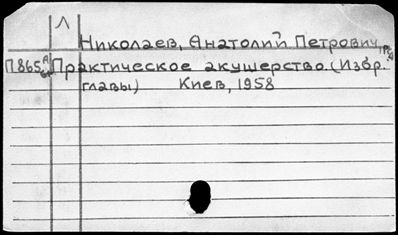 Л
Николаев, Анатолий Петрович
П865 Практическое акушерство. (Избр.
главы) Киев, 1958